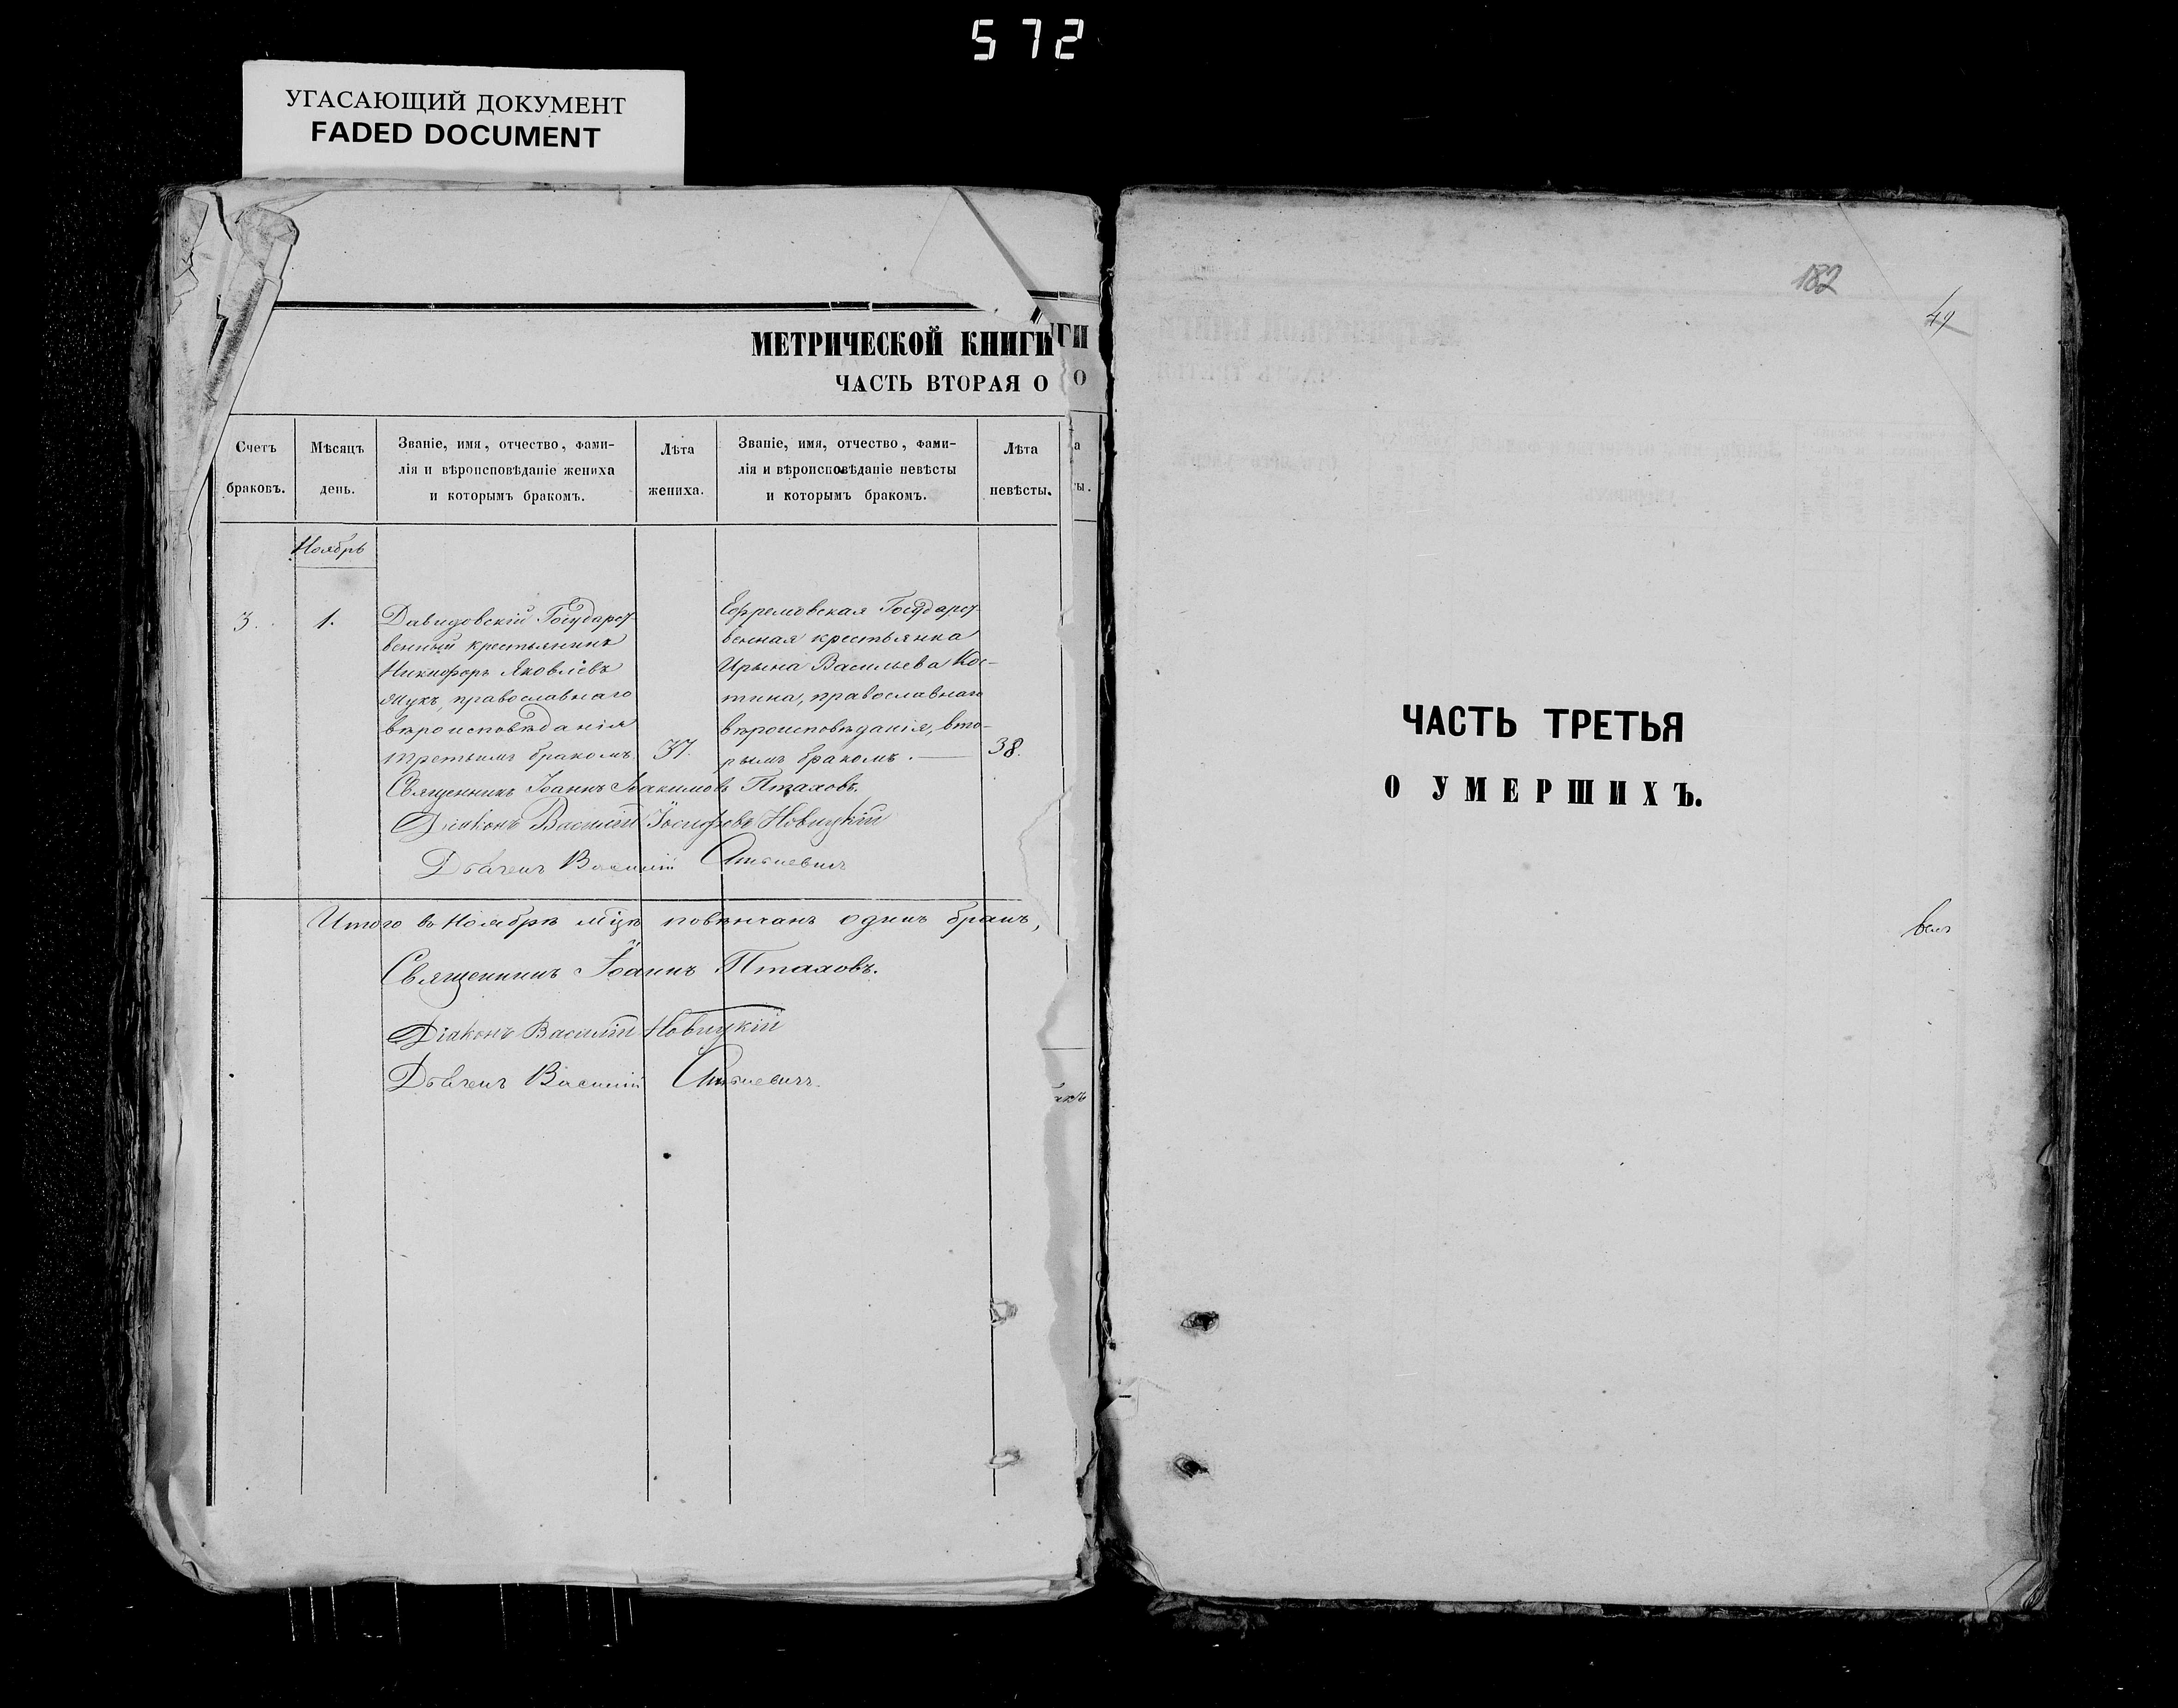 572
УГАСАЮЩИЙ ДОКУМЕНТ
FADED DOCUMENT
МЕТРИЧЕСКОЙ КНИГИ
ГИ
ЧАСТЬ ВТОРАЯ О
О
Счетъ браковъ.
Мѣсяцъ день.
Званіе, имя, отчество, фами-
лія и вѣроисповѣданіе жениха
и которымъ бракомъ.
Лѣта жениха.
Званіе, имя, отчество, фами-
лія и вѣроисповѣданіе невѣсты
и которымъ бракомъ.
Лѣта невѣсты.
а
ты.
Ноябрь
3.
1.
Давидовскій Государст-
венный крестьянинъ
Никифоръ Яковлевъ
Мукъ, православнаго
вѣроисповѣданія
третьимъ бракомъ.
37.
Ефремовская Государст-
венная крестьянка
Ирына Васильева Кос-
тина, православнаго
вѣроисповѣданія, вто-
рымъ бракомъ.
38.
Священникъ Іоаннъ Іоакимовъ Птаховъ.
Діаконъ Василій Іосифовъ Новицкій
Василій
Итого въ Ноябрѣ мцѣ повѣнчанъ одинъ бракъ,
Священникъ Іоаннъ Птаховъ.
Діаконъ Василій Новицкій
Василій
182
49
ЧАСТЬ ТРЕТЬЯ
О УМЕРШИХЪ.